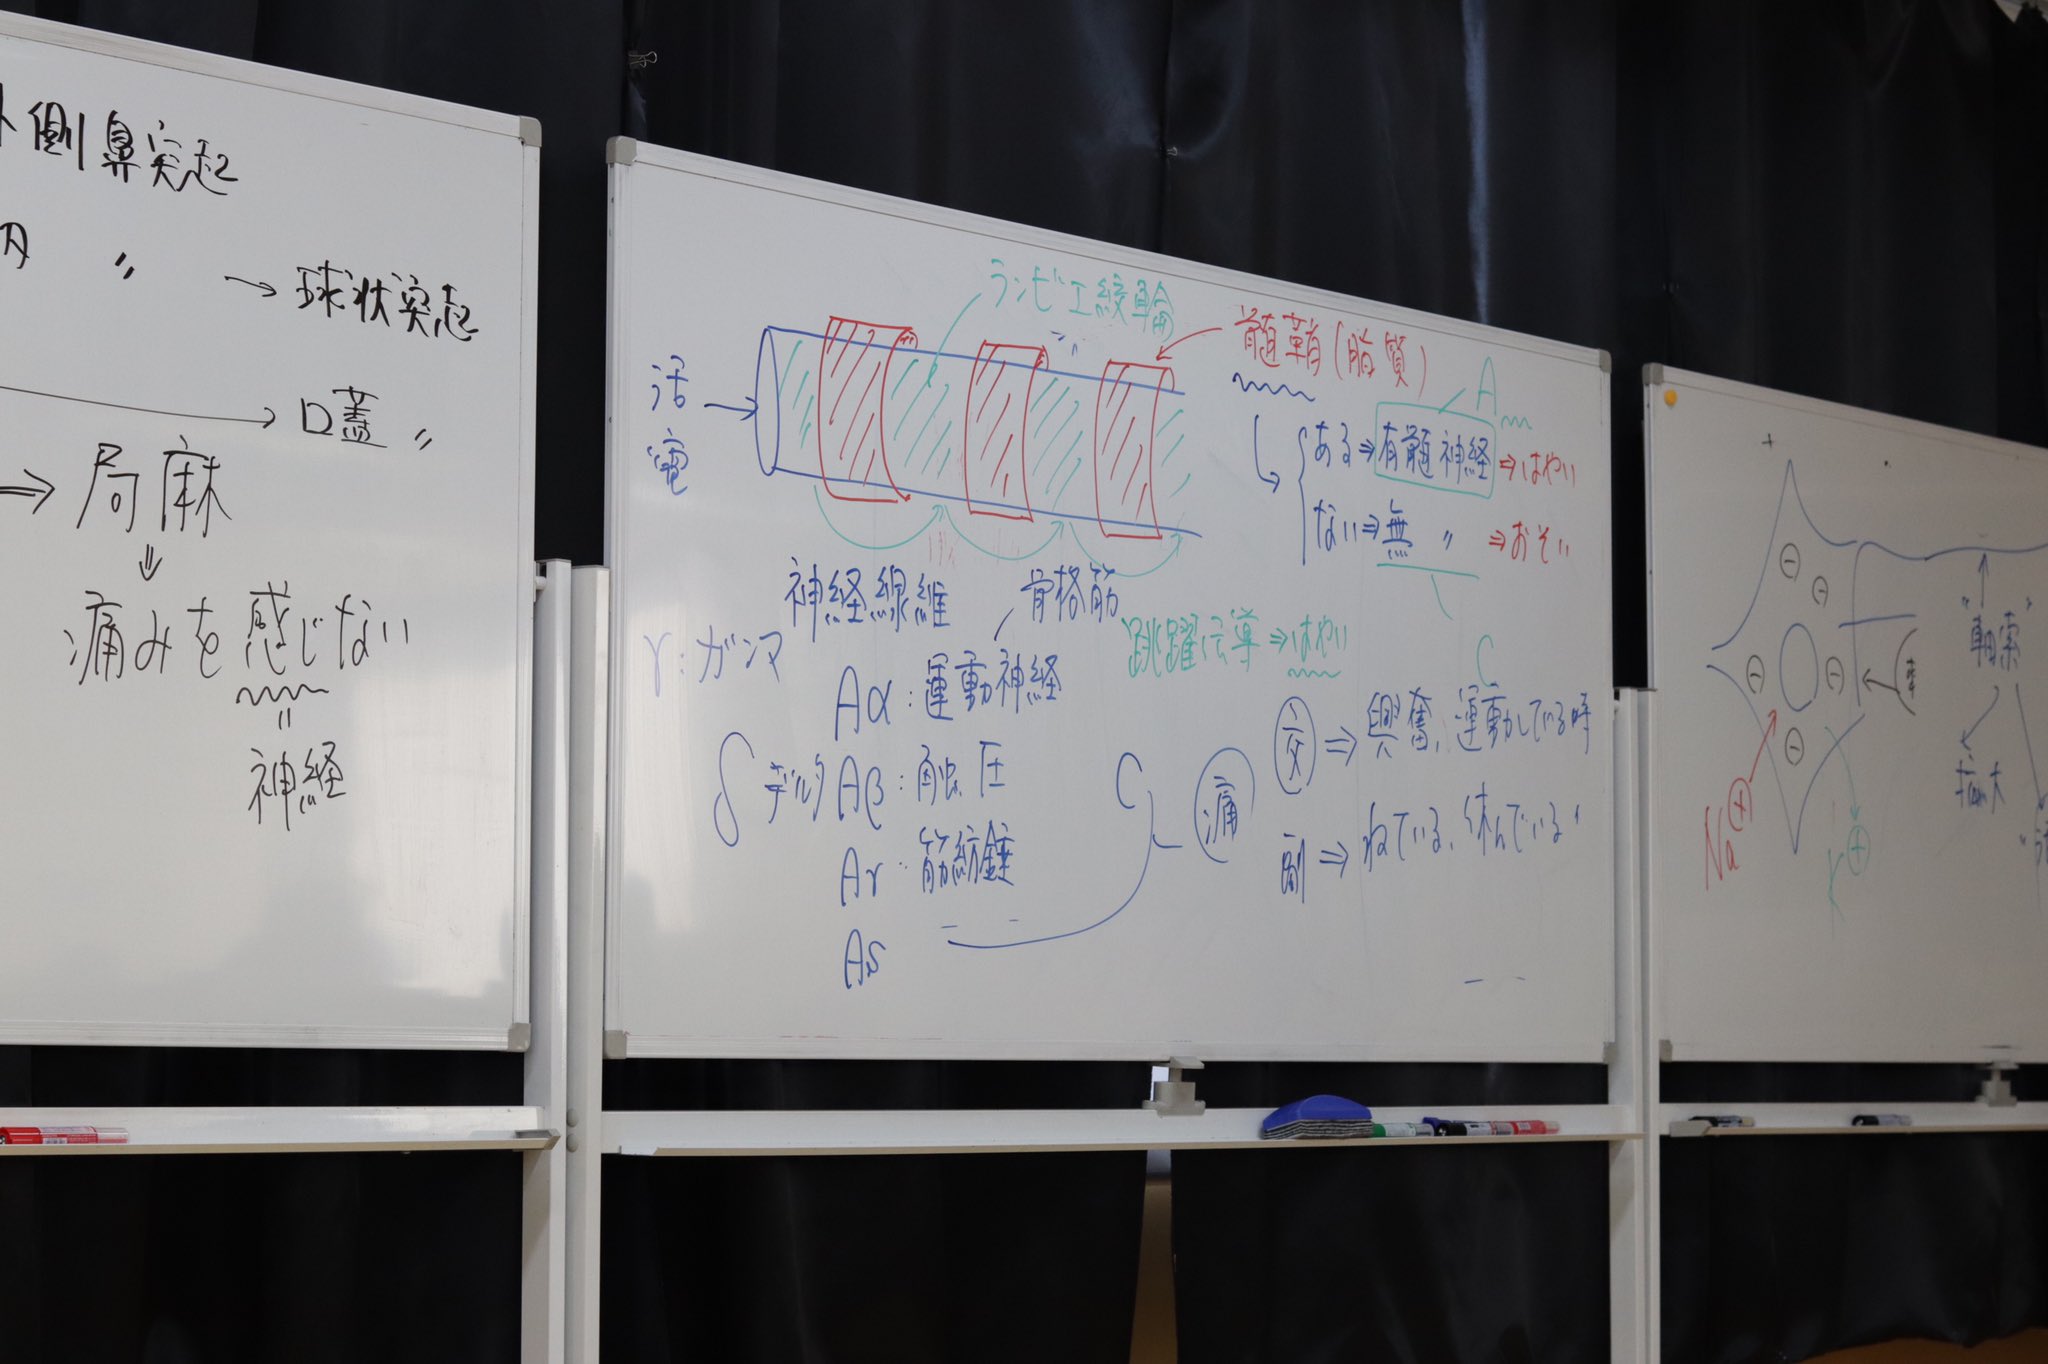 側鼻突起
〃 → 球状突起
→ 口蓋 〃
⇒ 局麻
⇓
痛みを感じない
〃
神経
ランビエ絞輪
髄鞘(脂質)
活電 →
A
ある ⇒ 有髄神経 ⇒ はやい
ない ⇒ 無 〃 ⇒ おそい
C
神経線維
骨格筋
跳躍伝導 ⇒ はやい
γ:ガンマ
Aα:運動神経
δ デルタ
Aβ:触圧
Aγ:筋紡錘
Aδ
C
痛
交 ⇒ 興奮、運動している時
副 ⇒ ねている、休んでいる〃
+
⊖ ⊖
⊖ ⊖
⊖
Na⊕
K⊕
"軸索"